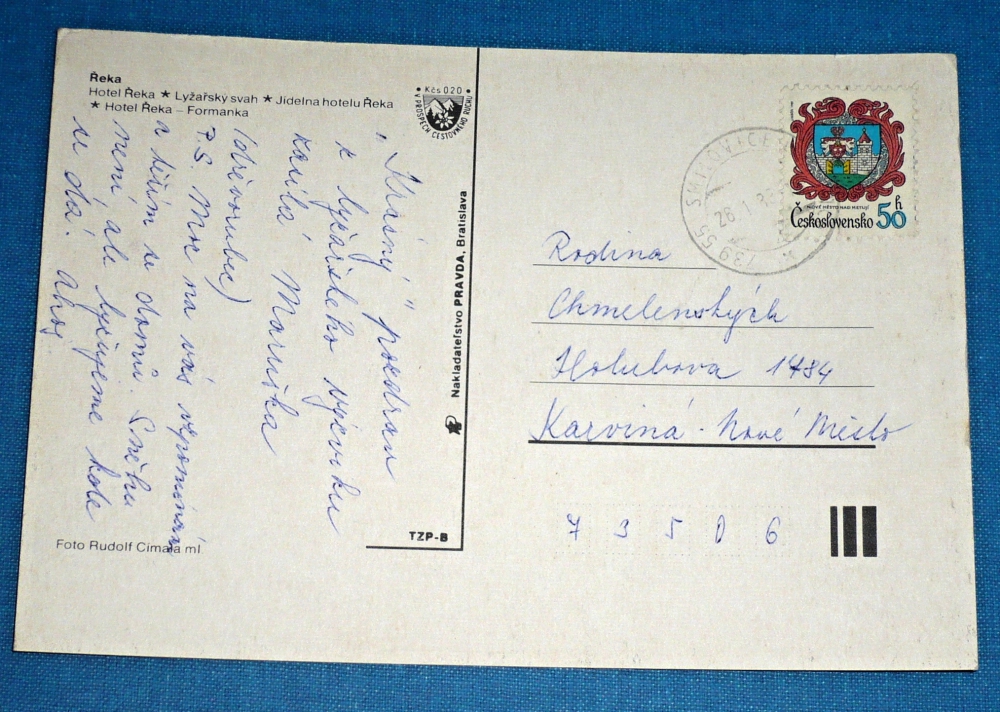 Řeka
Hotel Řeka ★ Lyžařský svah ★ Jídelna hotelu Řeka
★ Hotel Řeka – Formanka
Kčs 020
V PROSPĚCH CESTOVNÉHO RUCHU
„Krásný" pozdrav
z lyžařského výcviku
zasílá Maruška
P.S. Moc na vás vzpomínám
a těším se domů. Sněhu
není, ale lyžujeme kde
se dá. Ahoj
Foto Rudolf Cimala ml
Nakladateľstvo PRAVDA, Bratislava
TZP-B
739 55 SMILOVICE
26. 1. 8
NOVÉ MĚSTO NAD METUJÍ
Československo 50 h
Rodina
Chmelenských
Holubova 1784
Karviná - Nové Město
7 3 5 0 6